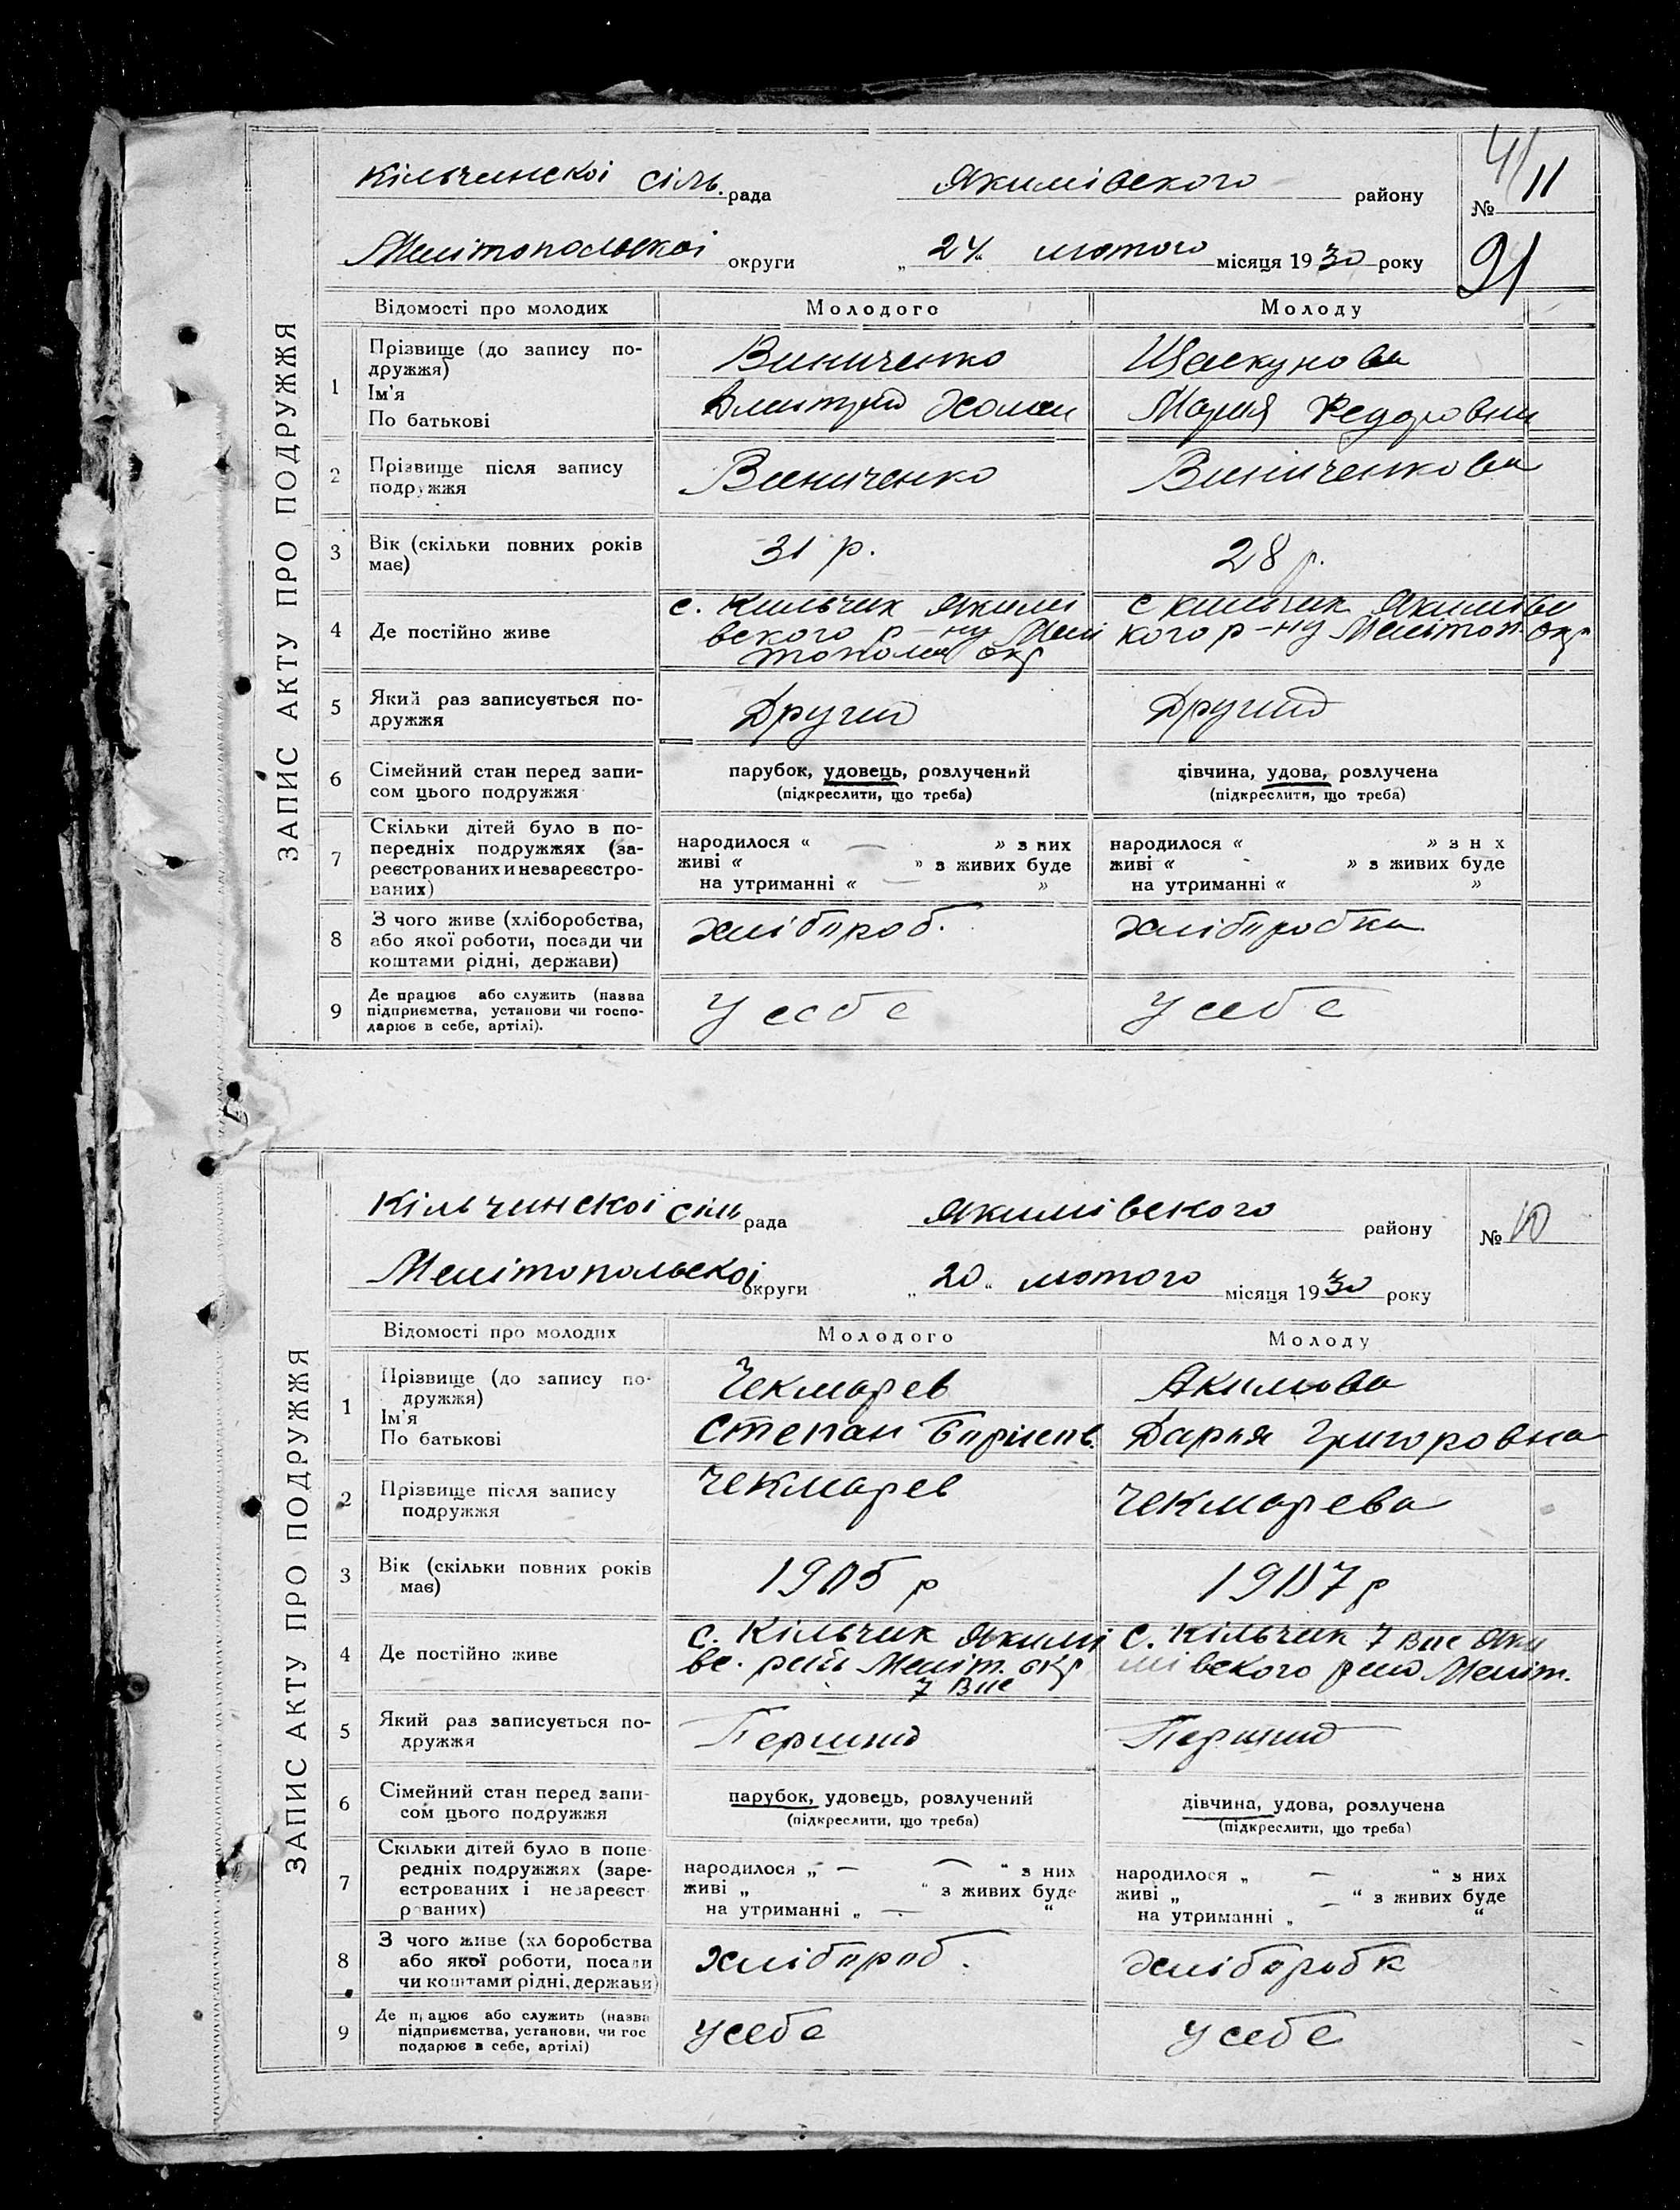 ЗАПИС АКТУ ПРО ПОДРУЖЖЯ
Кільчинскоі сіль. рада Якимівского району № 11
91
Мелітопольскоі округи „24“ лютого місяця 1930 року
Відомості про молодих Молодого Молоду
1 Прізвище (до запису по-
дружжя)
Ім'я
По батькові
Виниченко
Дмитрий Холан
Мария Федоровни
2 Прізвище після запису
подружжя
Виниченко Виниченкова
3 Вік (скільки повних років
має)
31 р. 28 р.
4 Де постійно живе
с. Кильчик Якимі
вского р-ну Мелі
тополя окр
с кильчик Якимівс
кого р-ну Мелітоп. окр
5 Який раз записується по-
дружжя
Другий Другий
6 Сімейний стан перед запи-
сом цього подружжя
парубок, удовець, розлучений
(підкреслити, що треба)
дівчина, удова, розлучена
(підкреслити, що треба)
7 Скільки дітей було в по-
передніх подружжях (за-
реєстрованих и незареєстро-
ваних)
народилося « — » з них
живі « » з живих буде
на утриманні « — »
народилося « » з н х
живі « - » з живих буде
на утриманні « »
8 З чого живе (хліборобства,
або якої роботи, посади чи
коштами рідні, держави)
хлібороб. хліборобка
9 Де працює або служить (назва
підприємства, установи чи госпо-
дарює в себе, артілі).
у себе у себе
ЗАПИС АКТУ ПРО ПОДРУЖЖЯ
Кільчинскоі сіль рада Якимівского району № 10
Мелітопольскоі округи „20“ лютого місяця 1930 року
Відомості про молодих Молодого Молоду
1 Прізвище (до запису по-
дружжя)
Ім'я
По батькові
Чекмарев
Степан Борисов.
Акимова
Дарья Григоровна
2 Прізвище після запису
подружжя
Чекмарев Чекмарева
3 Вік (скільки повних років
має)
1905 р 1907 р
4 Де постійно живе
с. Кільчик Якимі
вс. рай Меліт. окр
7
с. Кільчик 7 Яки
мівского рай Меліт.
5 Який раз записується по-
дружжя
Перший Перший
6 Сімейний стан перед запи-
сом цього подружжя
парубок, удовець, розлучений
(підкреслити, що треба)
дівчина, удова, розлучена
(підкреслити, що треба)
7 Скільки дітей було в попе
редніх подружжях (заре-
єстрованих і незареєст
рованих)
народилося „ — “ з них
живі „ “ з живих буде
на утриманні „ — “
народилося „ — “ з них
живі „ “ з живих буде
на утриманні „ — “
8 З чого живе (хл боробства
або якої роботи, посади
чи коштами рідні, держави)
хлібороб. хліборобк
9 Де працює або служить (назва
підприємства, установи, чи гос
подарює в себе, артілі)
у себе у себе